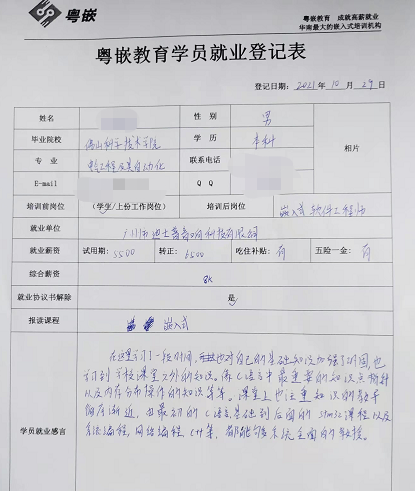 粤嵌
粤嵌教育 成就高薪就业
华南最大的嵌入式培训机构
粤嵌教育学员就业登记表
登记日期: 2021 年 10 月 29 日
姓名 性 别 男
毕业院校 佛山科学技术学院 学 历 本科 相片
专 业 工程及其自动化 联系电话
E-mail Q Q
培训前岗位 (学生/上份工作岗位) 培训后岗位 嵌入式软件工程师
就业单位 有限公司
就业薪资 试用期: 5500 转正: 6500 吃住补贴: 有 五险一金: 有
综合薪资 8K
就业协议书解除 是
报读课程 嵌入式
在这里学习了一段时间, 也对自己的基础知识加强了巩固也
学到学校课堂之外的知识。像C语言中最重要的知识点指针
以及内存分布操作的知识等等。课堂上也注重知识的
循序渐近,由最初的C语言基础到后面的stm32课程以及
系统编程,网络编程,C++等,都能够系统全面的教授。
学员就业感言